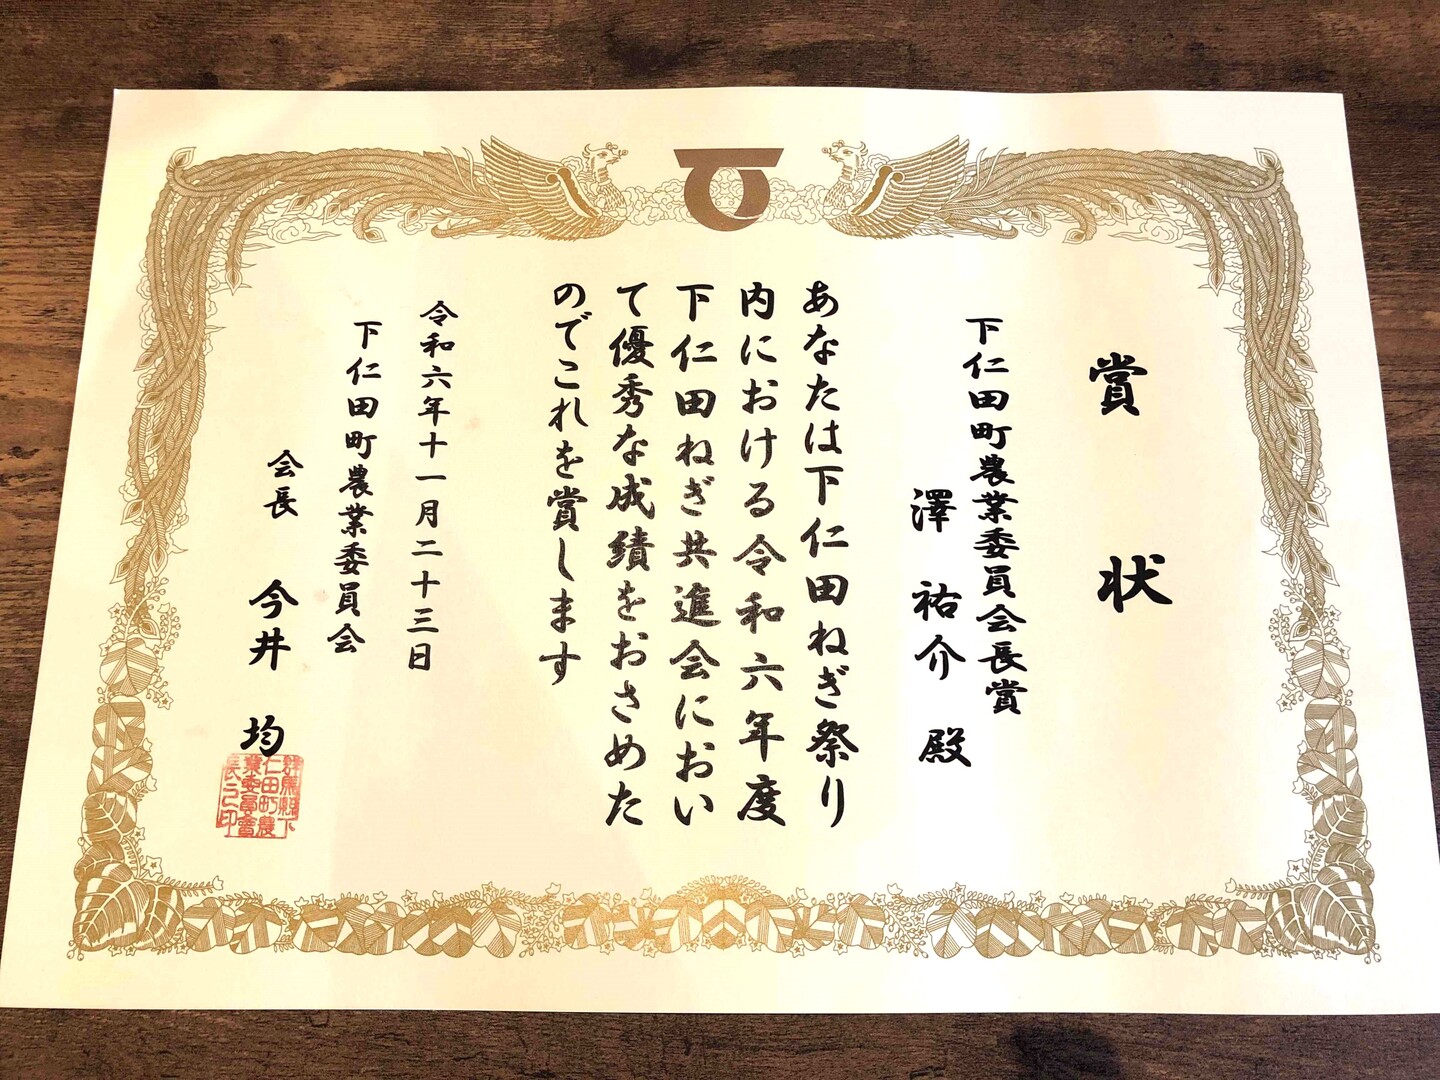 賞状
下仁田町農業委員会長賞
澤祐介殿
あなたは下仁田ねぎ祭り
内における令和六年度
下仁田ねぎ共進会におい
て優秀な成績をおさめた
のでこれを賞します
令和六年十一月二十三日
下仁田町農業委員会
会長 今井 均
群馬縣下
仁田町農
業委員會
長之印